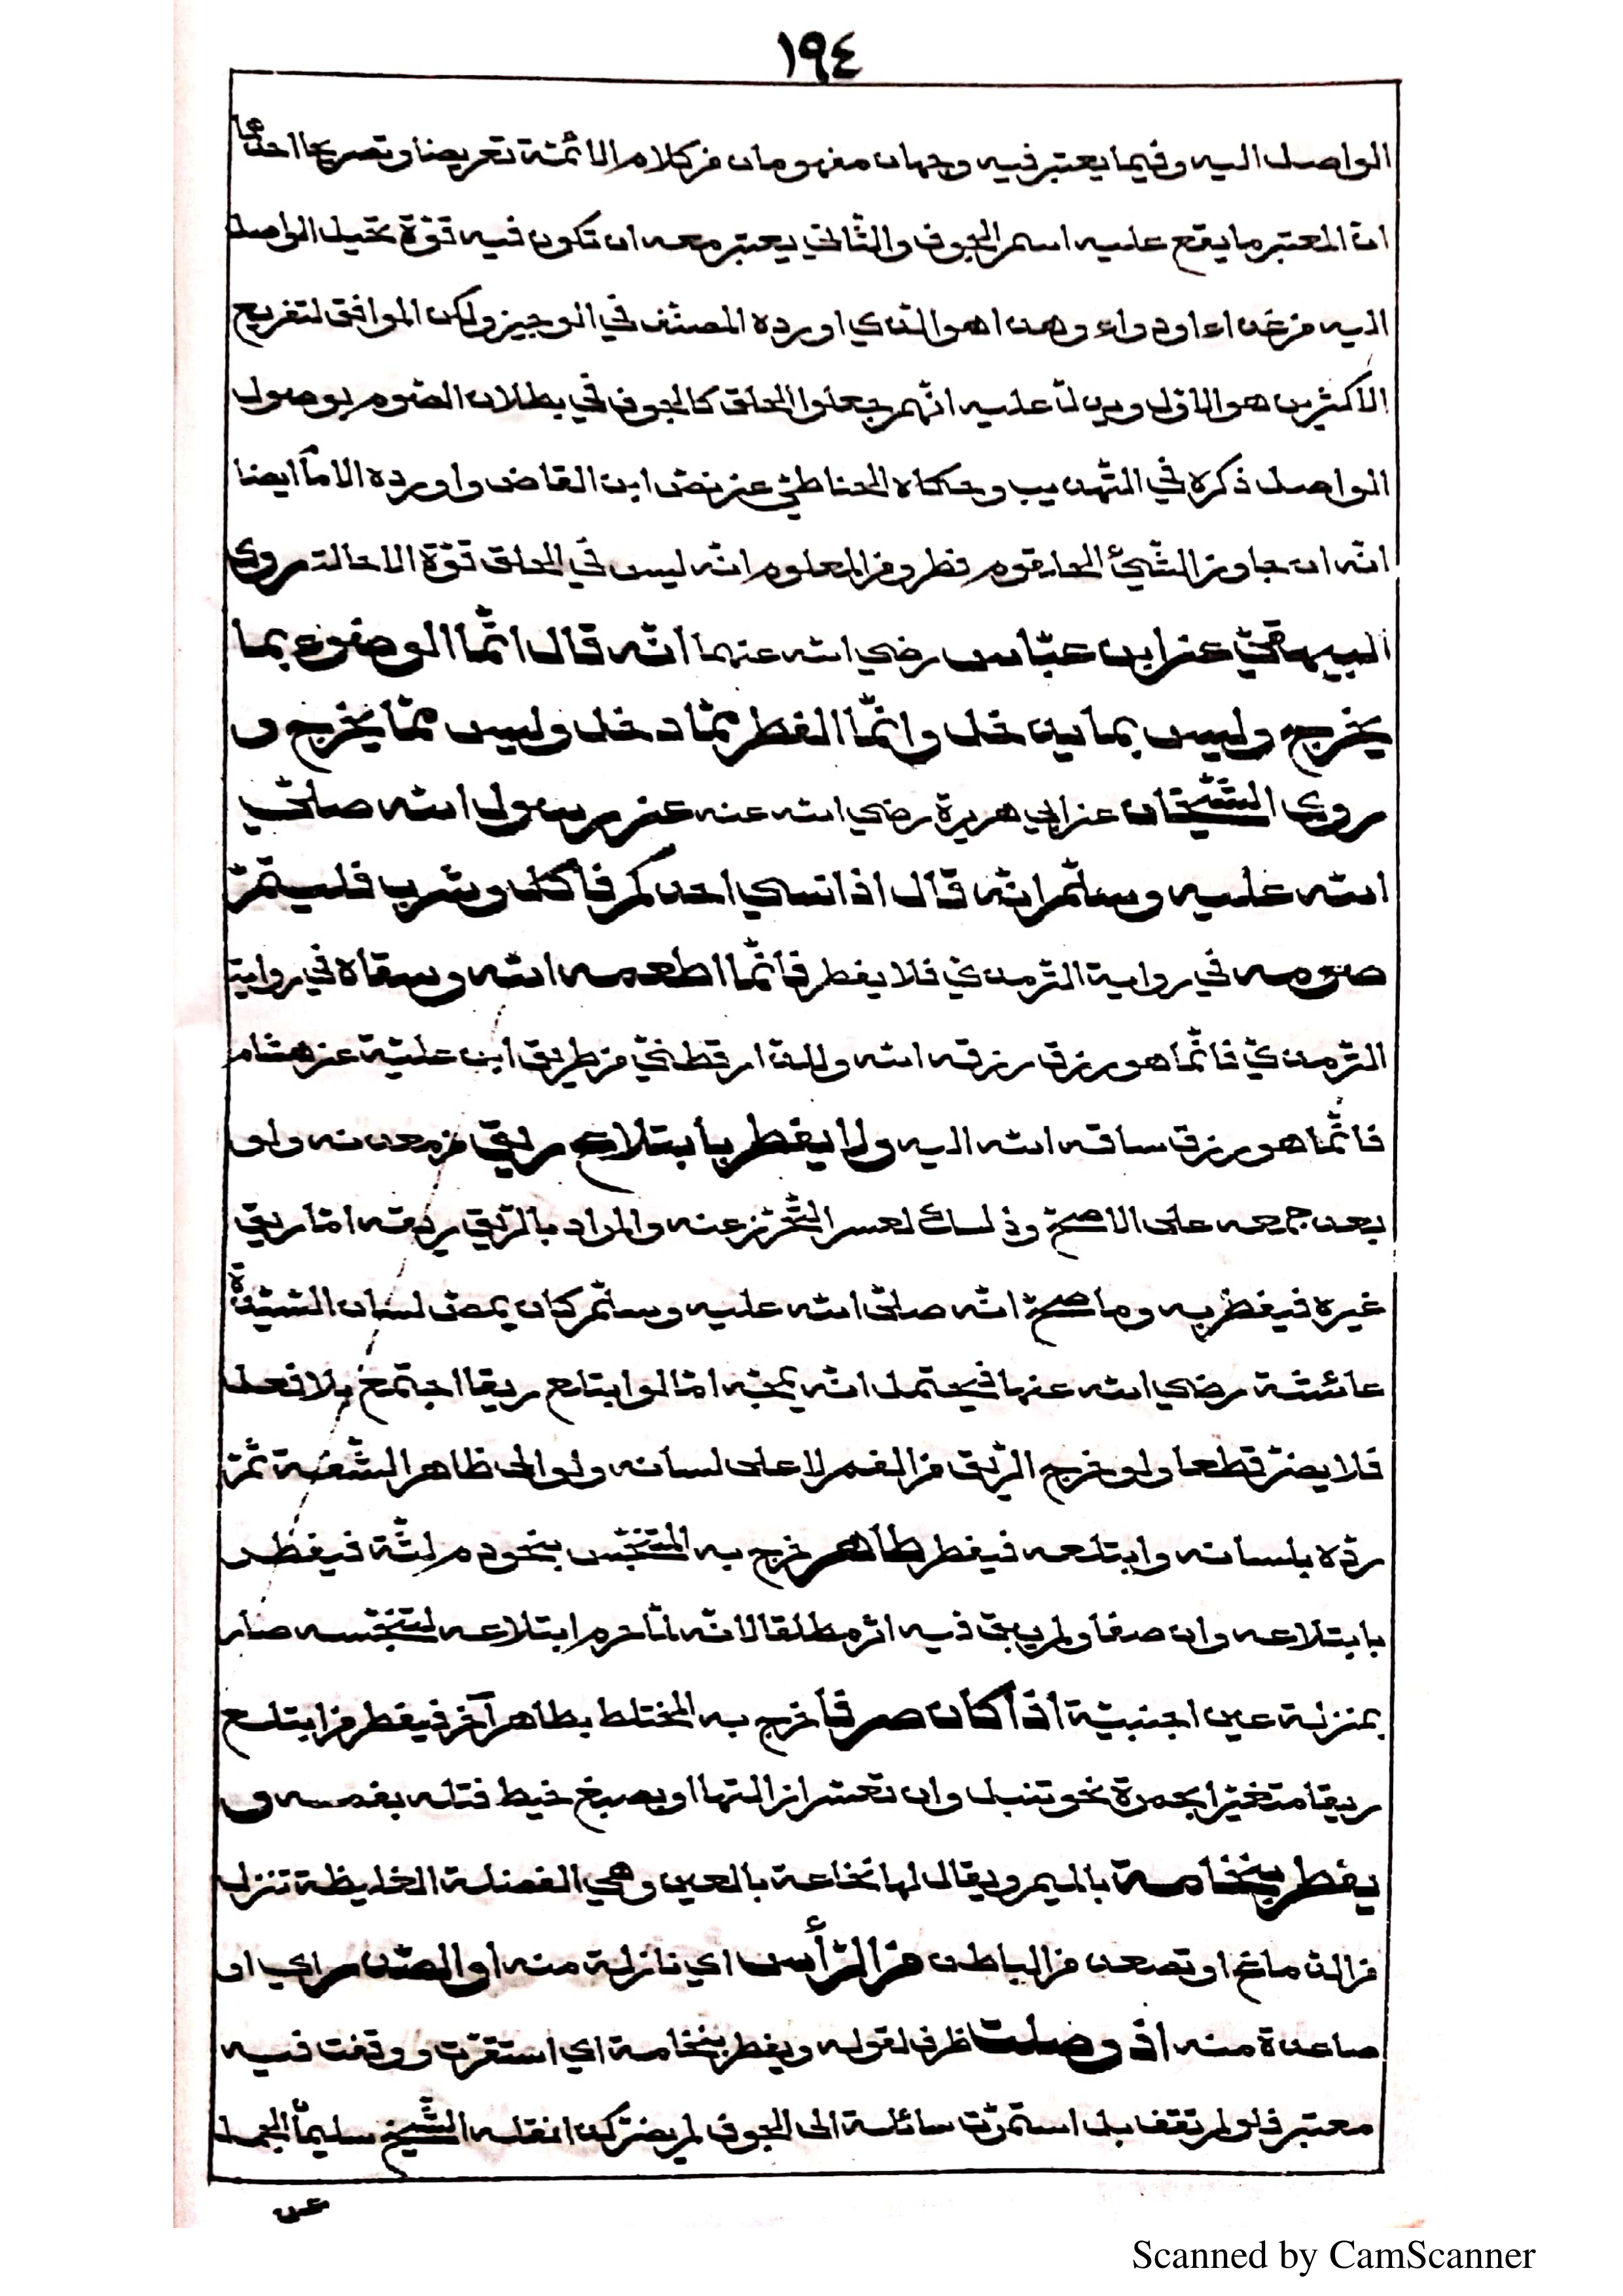 ١٩٤
الواصل اليه وفيما يعتبر فيه وجهان مفهومان من كلام الائمّة تعريضا وتصريحا احدهما
انّ المعتبر ما يقع عليه اسم الجوف والثّاني يعتبر معه ان تكون فيه قوّة تحيل الواصل
اليه من غذاء او دواء وهذا هو الّذي اورده المصنّف في الوجيز ولكن الموافق لتفريع
الاكثرين هو الاوّل ويدلّ عليه انّهم جعلوا الحلق كالجوف في بطلان الصّوم بوصول
الواصل ذكره في التّهذيب وحكاه الحناطيّ عن نصّ ابن القاص واورده الامام ايضا
انّه ان جاوز الشّيئ الحلقوم فطر ومن المعلوم انّه ليس في الحلق قوّة الاحالة روى
البيهقيّ عن ابن عبّاس رضي الله عنهما انّه قال انّما الوضوء بما
يخرج وليس بما يدخل وانّما الفطر ممّا دخل وليس ممّا يخرج و
روى الشّيخان عن ابي هريرة رضي الله عنه عن رسول الله صلّى
الله عليه وسلّم انّه قال اذا نسي احدكم فأكل وشرب فليتمّ
صومه في رواية التّرمذي فلا يفطر فانّما اطعمه الله وسقاه في رواية
التّرمذيّ فانّما هو رزق رزقه الله وللدّارقطنيّ من طريق ابن عليّة عن هشام
فانّما هو رزق ساقه الله اليه ولا يفطر بابتلاع ريق من معدنه ولو
بعد جمعه على الاصحّ وذلك لعسر التّحرّز عنه والمراد بالرّيق ريقه امّا ريق
غيره فيفطر به وما صحّ انّه صلّى الله عليه وسلّم كان يمصّ لسان السّيّدة
عائشة رضي الله عنها فيحتمل انّه يمجّه امّا لو ابتلع ريقا اجتمع بلا فعل
فلا يضرّ قطعا ولو خرج الرّيق من الفم لا على لسانه ولو الى ظاهر الشّفة ثمّ
ردّه بلسانه وابتلعه فيفطر طاهر خرج به المتنجّس بنحو دم لثّة فيفطر
بابتلاعه وان صفا ولم يبق فيه اثر مطلقا لانّه لمّا حرم ابتلاعه لتنجّسه صار
بمنزلة عين اجنبيّة اذا كان صرفا خرج به المختلط بطاهر آخر فيفطر من ابتلع
ريقا متغيّرا بحمرة نحو تنبل وان تعسّر ازالتها او بصبغ خيط فتله بفمه و
يفطر بنخامة بالميم ويقال لها نخاعة بالعين وهي الفضلة الغليظة تنزل
من الدّماغ او تصعد من الباطن من الرّأس اي نازلة منه او الصّدر اي او
صاعدة منه اذ وصلت ظرف لقوله ويفطر بنخامة اي استقرّت ووقفت فيه
معتبر فلو لم تقف بل استمرّت سائلة الى الجوف لم يضرّ كذا نقله الشّيخ سليمان الجمل
عن
Scanned by CamScanner